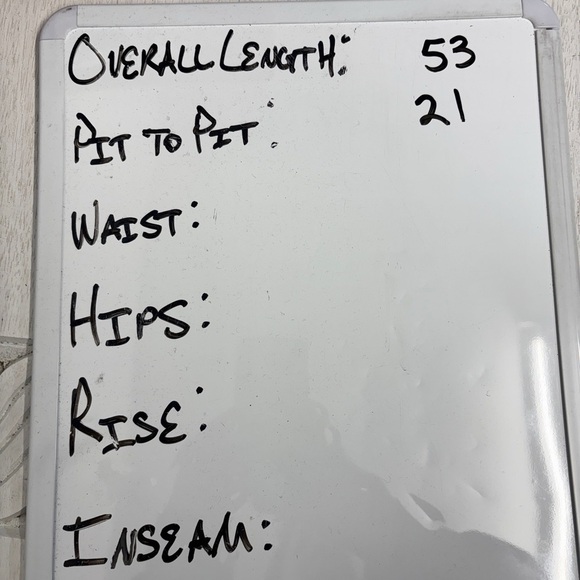 OVERALL LENGTH: 53
PIT TO PIT: 21
WAIST:
HIPS:
RISE:
INSEAM: